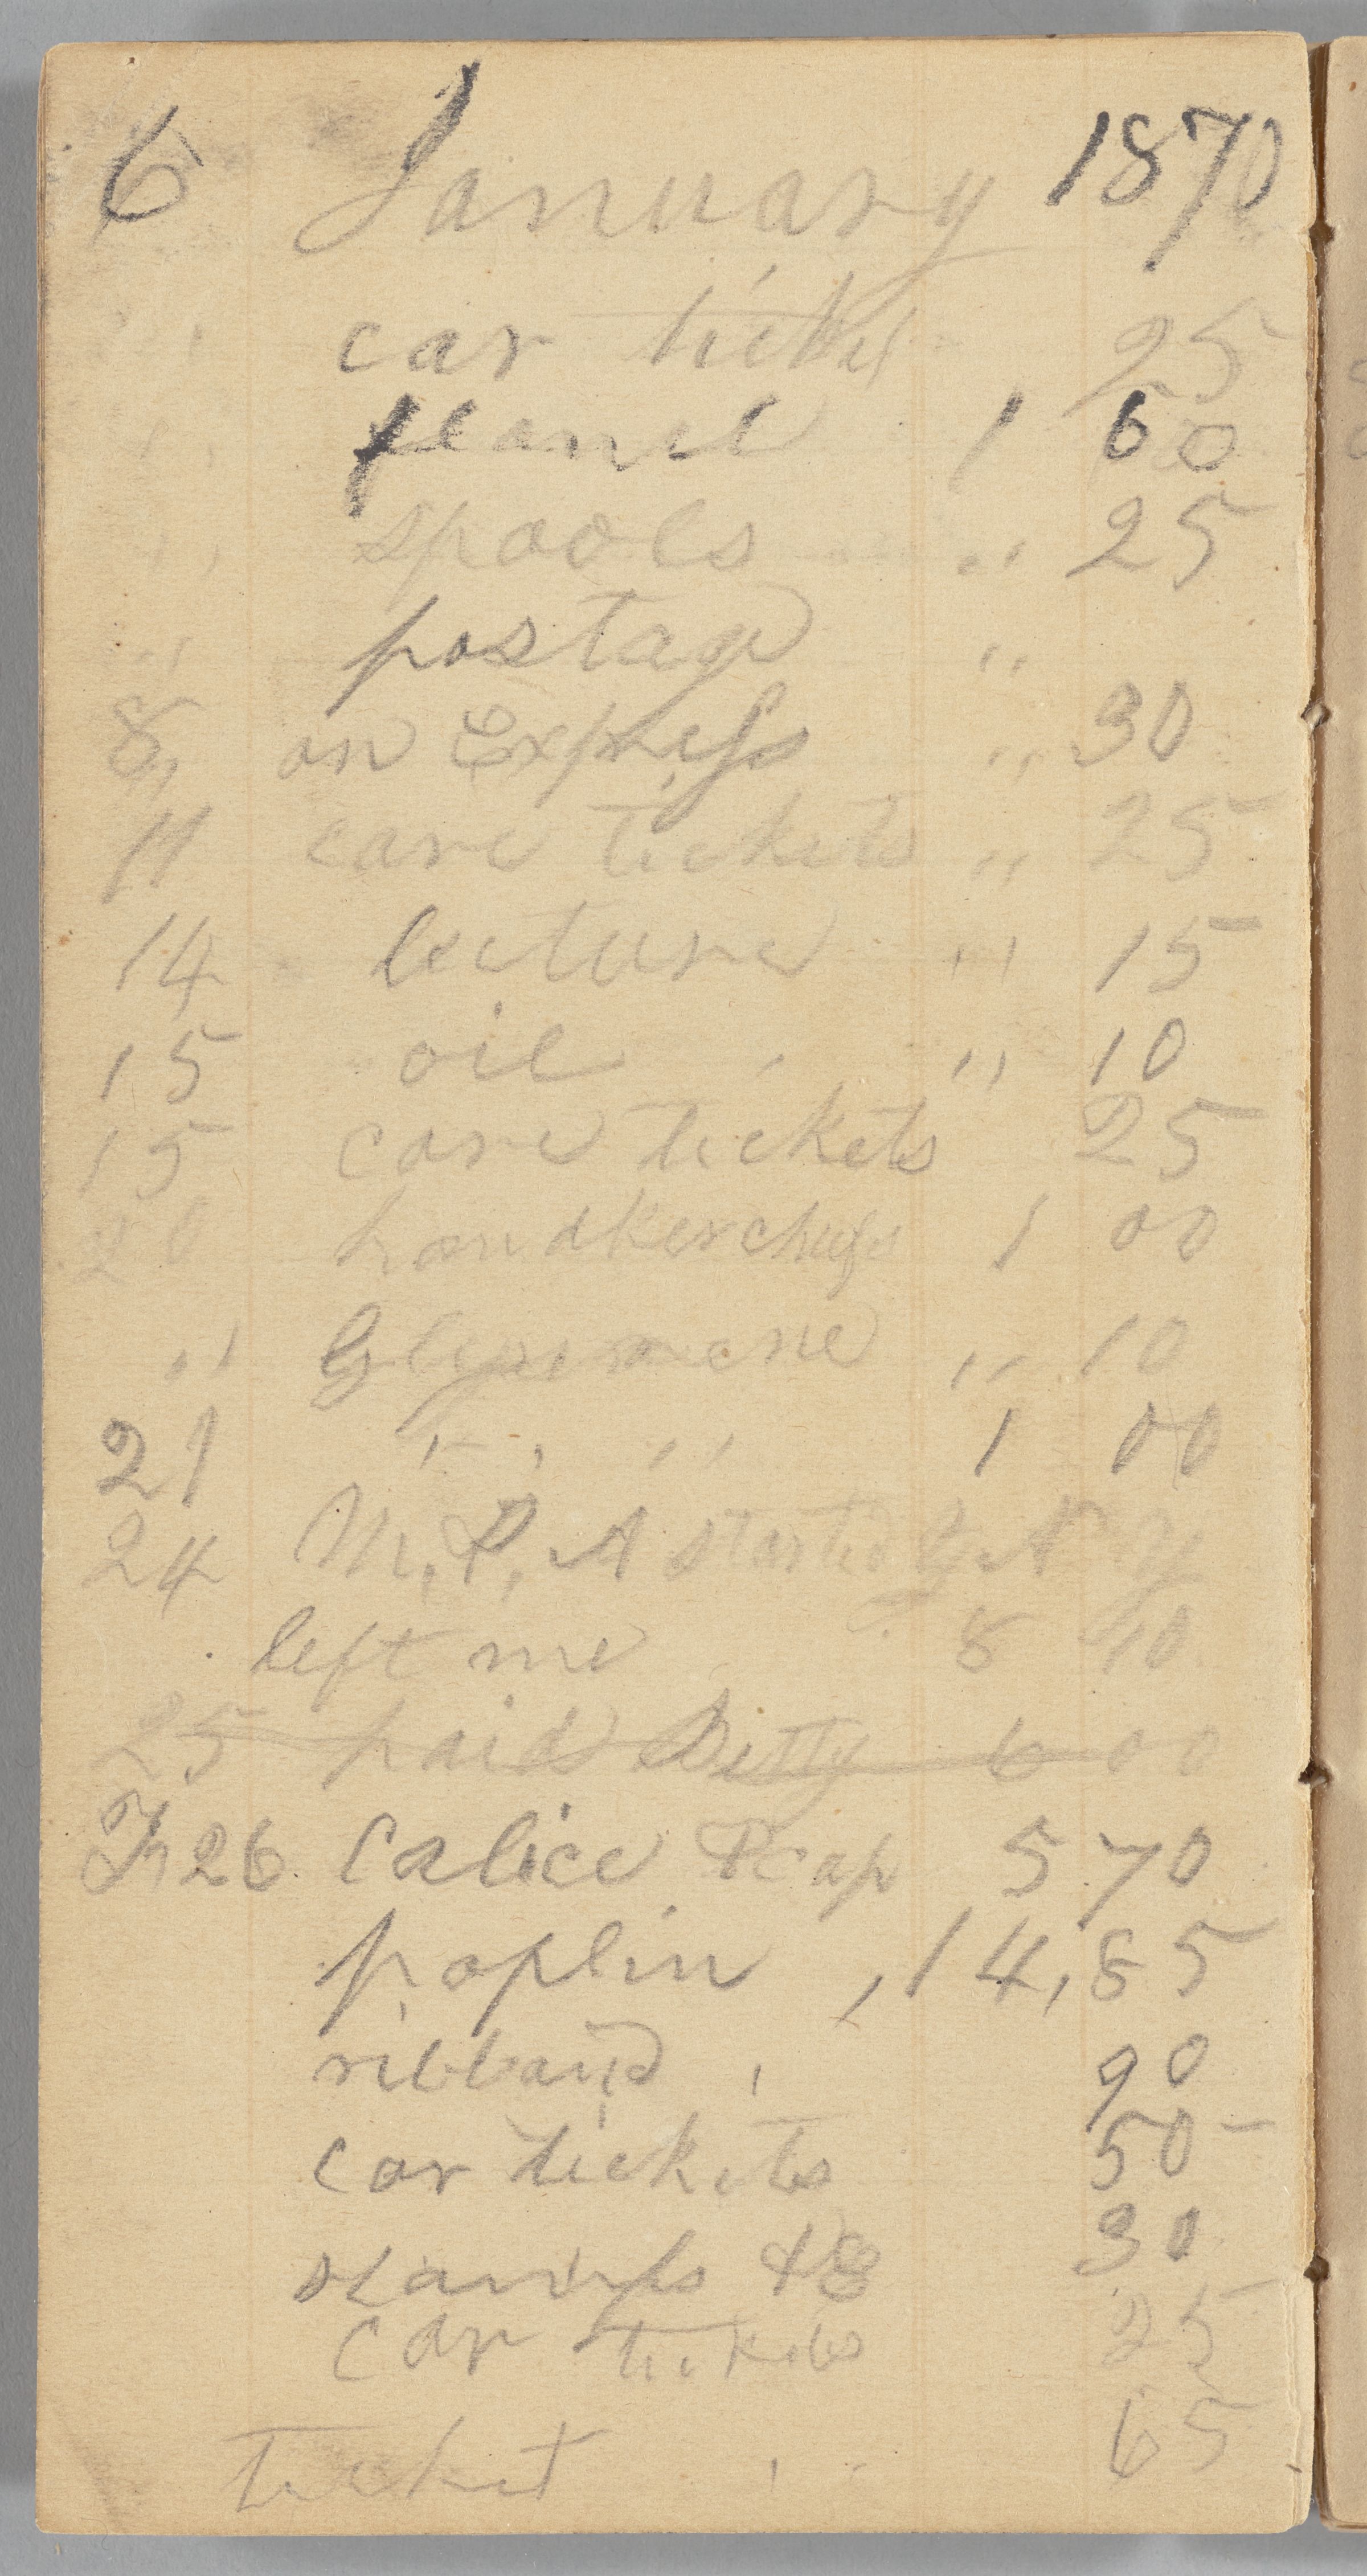 6 January 1870
" car ticket 25
" flanel 1 60
" spools " 25
" postage "
8, on Express " 30
11 care tickets " 25
14 lecture " 15
15 oil " 10
15 care tickets 25
20 handkerchiefs 1 00
" " 10
21 " " 1 00
24 M, P, A started N Y
left me 8
25 paid Betty 6 00
26 Calice & cap 5 70
poplin , 14,85
ribband 90
car tickets 50
stamps 30
car tickets 25
ticket 65